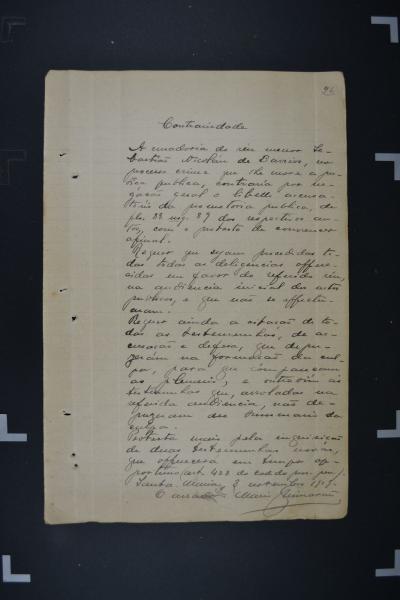 Contrariedade
A curadoria do réu menor Se-
bastião Nicoláu de Barros, no
processo crime que lhe move a jus-
tiça publica, contraria por ne-
gação geral o libello accusa-
torio da promotoria publica, de
fls. 88 usq. 89 dos respectivos au-
tos, com o protesto de convencer
afinal.
Requer que sejam procedidas to-
das todas as deligencias offere-
cidas em favor do referido réu,
na audiencia inicial dos actos
publicos, e que não se effectu-
aram.
Requer ainda a citação de to-
das as testemunhas, de ac-
cusação e defesa, que depu-
zeram na formação da cul-
pa, para que compareçam
ao plenario, e outrosim as
testemunhas que, arroladas na
referida audiencia, não de-
puzeram no summario da
culpa.
Protesta mais pela inquirição
de duas testemunhas novas,
que offerecerá em tempo op-
portuno (art. 423 do cod. do proc. pen.).
Santa Maria, 2 novembro
O curador